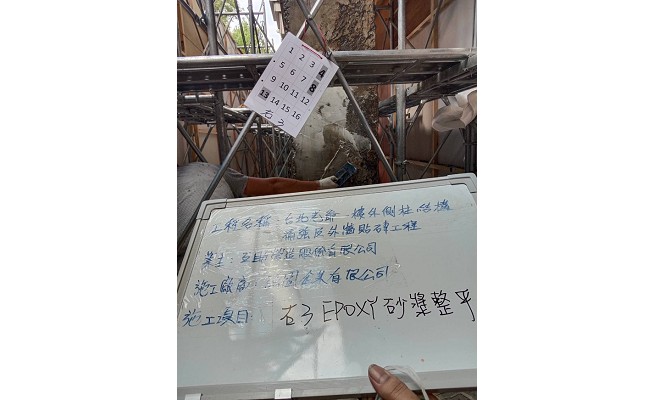 1 2 3 4
5 6 7 8
9 10 11 12
13 14 15 16
右3
工程名稱:台北 樓外側柱結構
補強及外牆貼磚工程
業主:互助營造股份有限公司
施工廠商: 有限公司
施工項目: 右3 EPOXY 砂漿整平